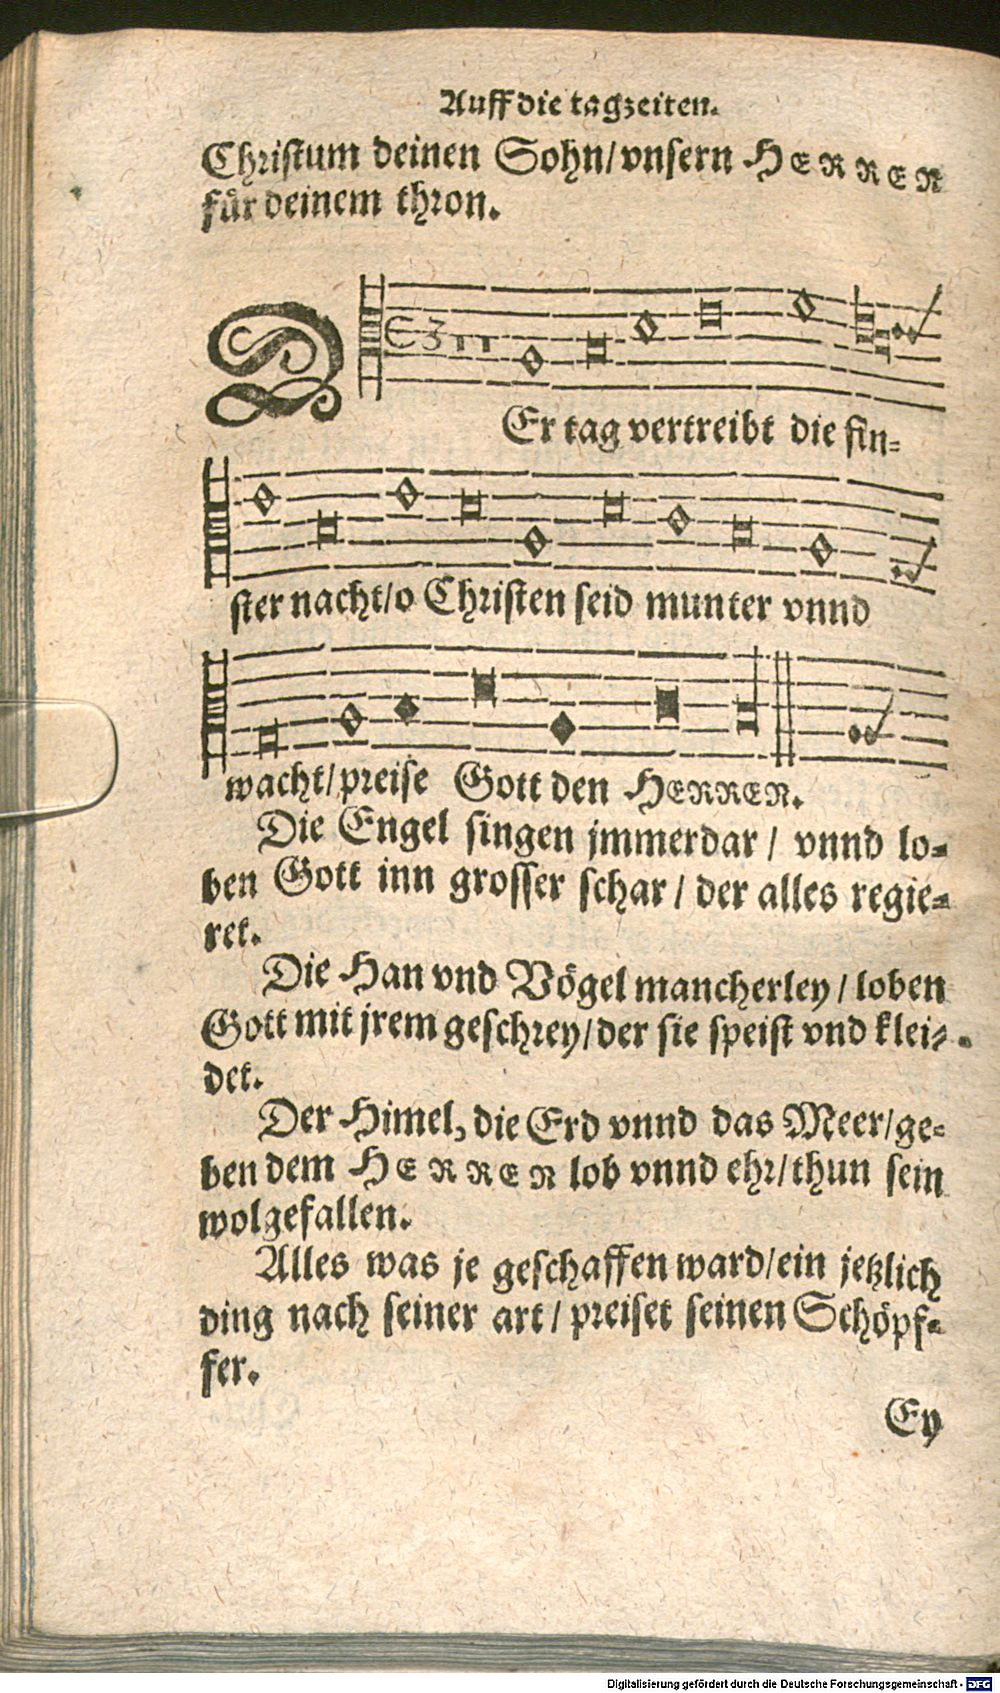 Auff die tagzeiten.
Christum deinen Sohn/vnsern HERREN
für deinem thron.
DEr tag vertreibt die fin-
ster nacht/o Christen seid munter vnnd
wacht/preise Gott den HERREN.
Die Engel singen jmmerdar/ vnnd lo-
ben Gott inn grosser schar/ der alles regie-
ret.
Die Han vnd Vögel mancherley/ loben
Gott mit jrem geschrey/der sie speist vnd klei-
det.
Der Himel, die Erd vnnd das Meer/ge-
ben dem HERREN lob vnnd ehr/thun sein
wolgefallen.
Alles was je geschaffen ward/ein jetzlich
ding nach seiner art/ preiset seinen Schöpf-
fer.
Ey
Digitalisierung gefördert durch die Deutsche Forschungsgemeinschaft - DFG